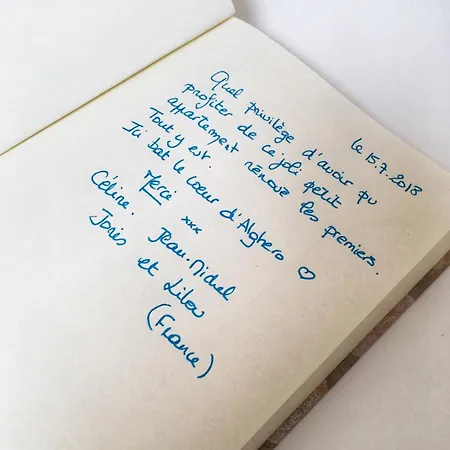 le 15.7.2018
Quel privilège d'avoir pu
profiter de ce joli petit
appartement rénové les premiers.
Tout y est.
Ici bat le cœur d'Alghero ♡
Merci xxx
Céline. Jean-Michel
Joris et Lilou
(France)